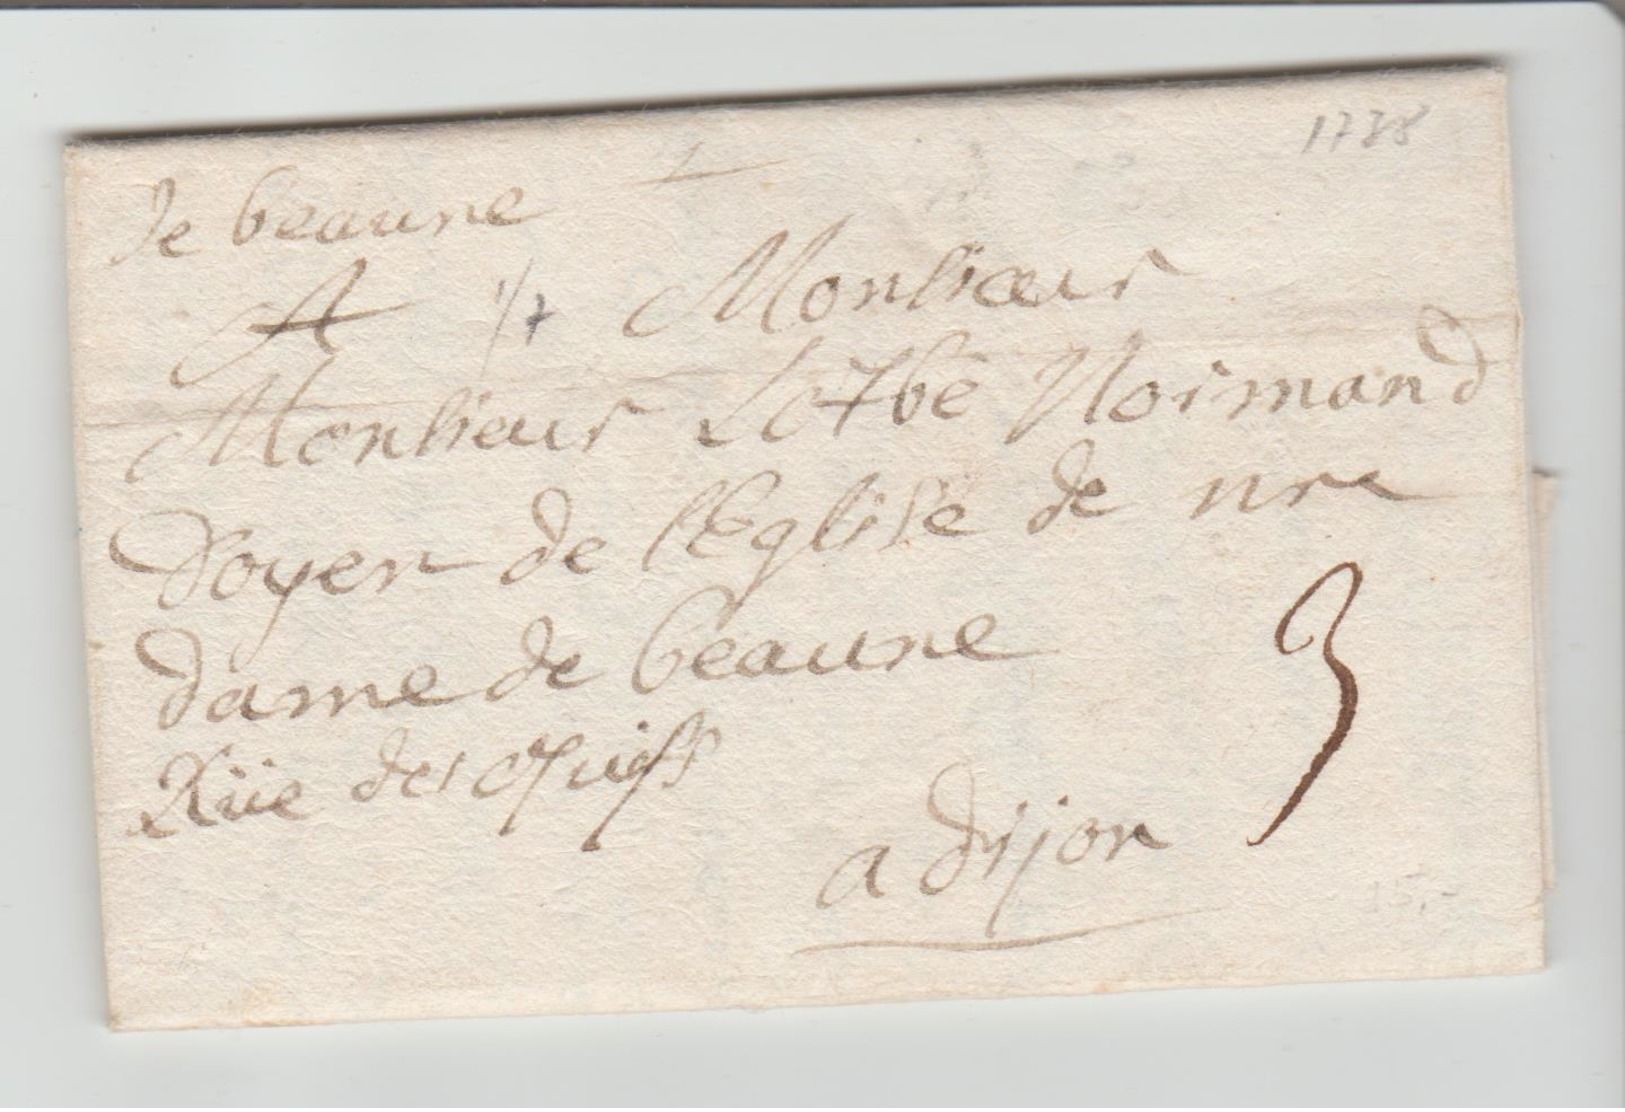 1728
De beaune
A Monsieur
Monsieur L'abbé Normand
Doyen de l'Eglise de nre
dame de beaune
Rüe des
3
a dijon
15,-